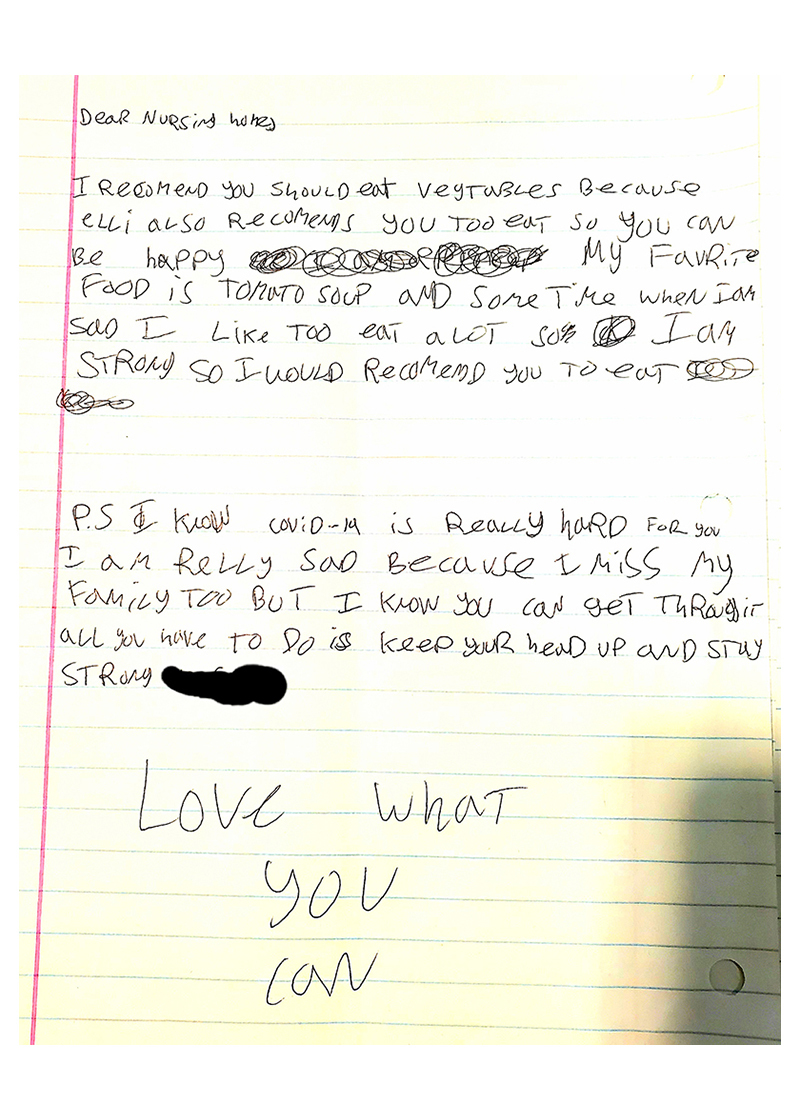 Dear Nursing homes
I Recomend you should eat veytables Because
elli also Recomends you too eat so you can
Be happy My Favrite
Food is Tomato soup and some Time when I am
sad I Like Too eat alot so I am
Strong so I would Recomend you to eat
P.S I know covid-19 is Really hard For you
I am Relly sad Because I miss my
Family Too But I know you can get Through it
all you have To Do is keep your head up and stay
Strong
Love what
you
can